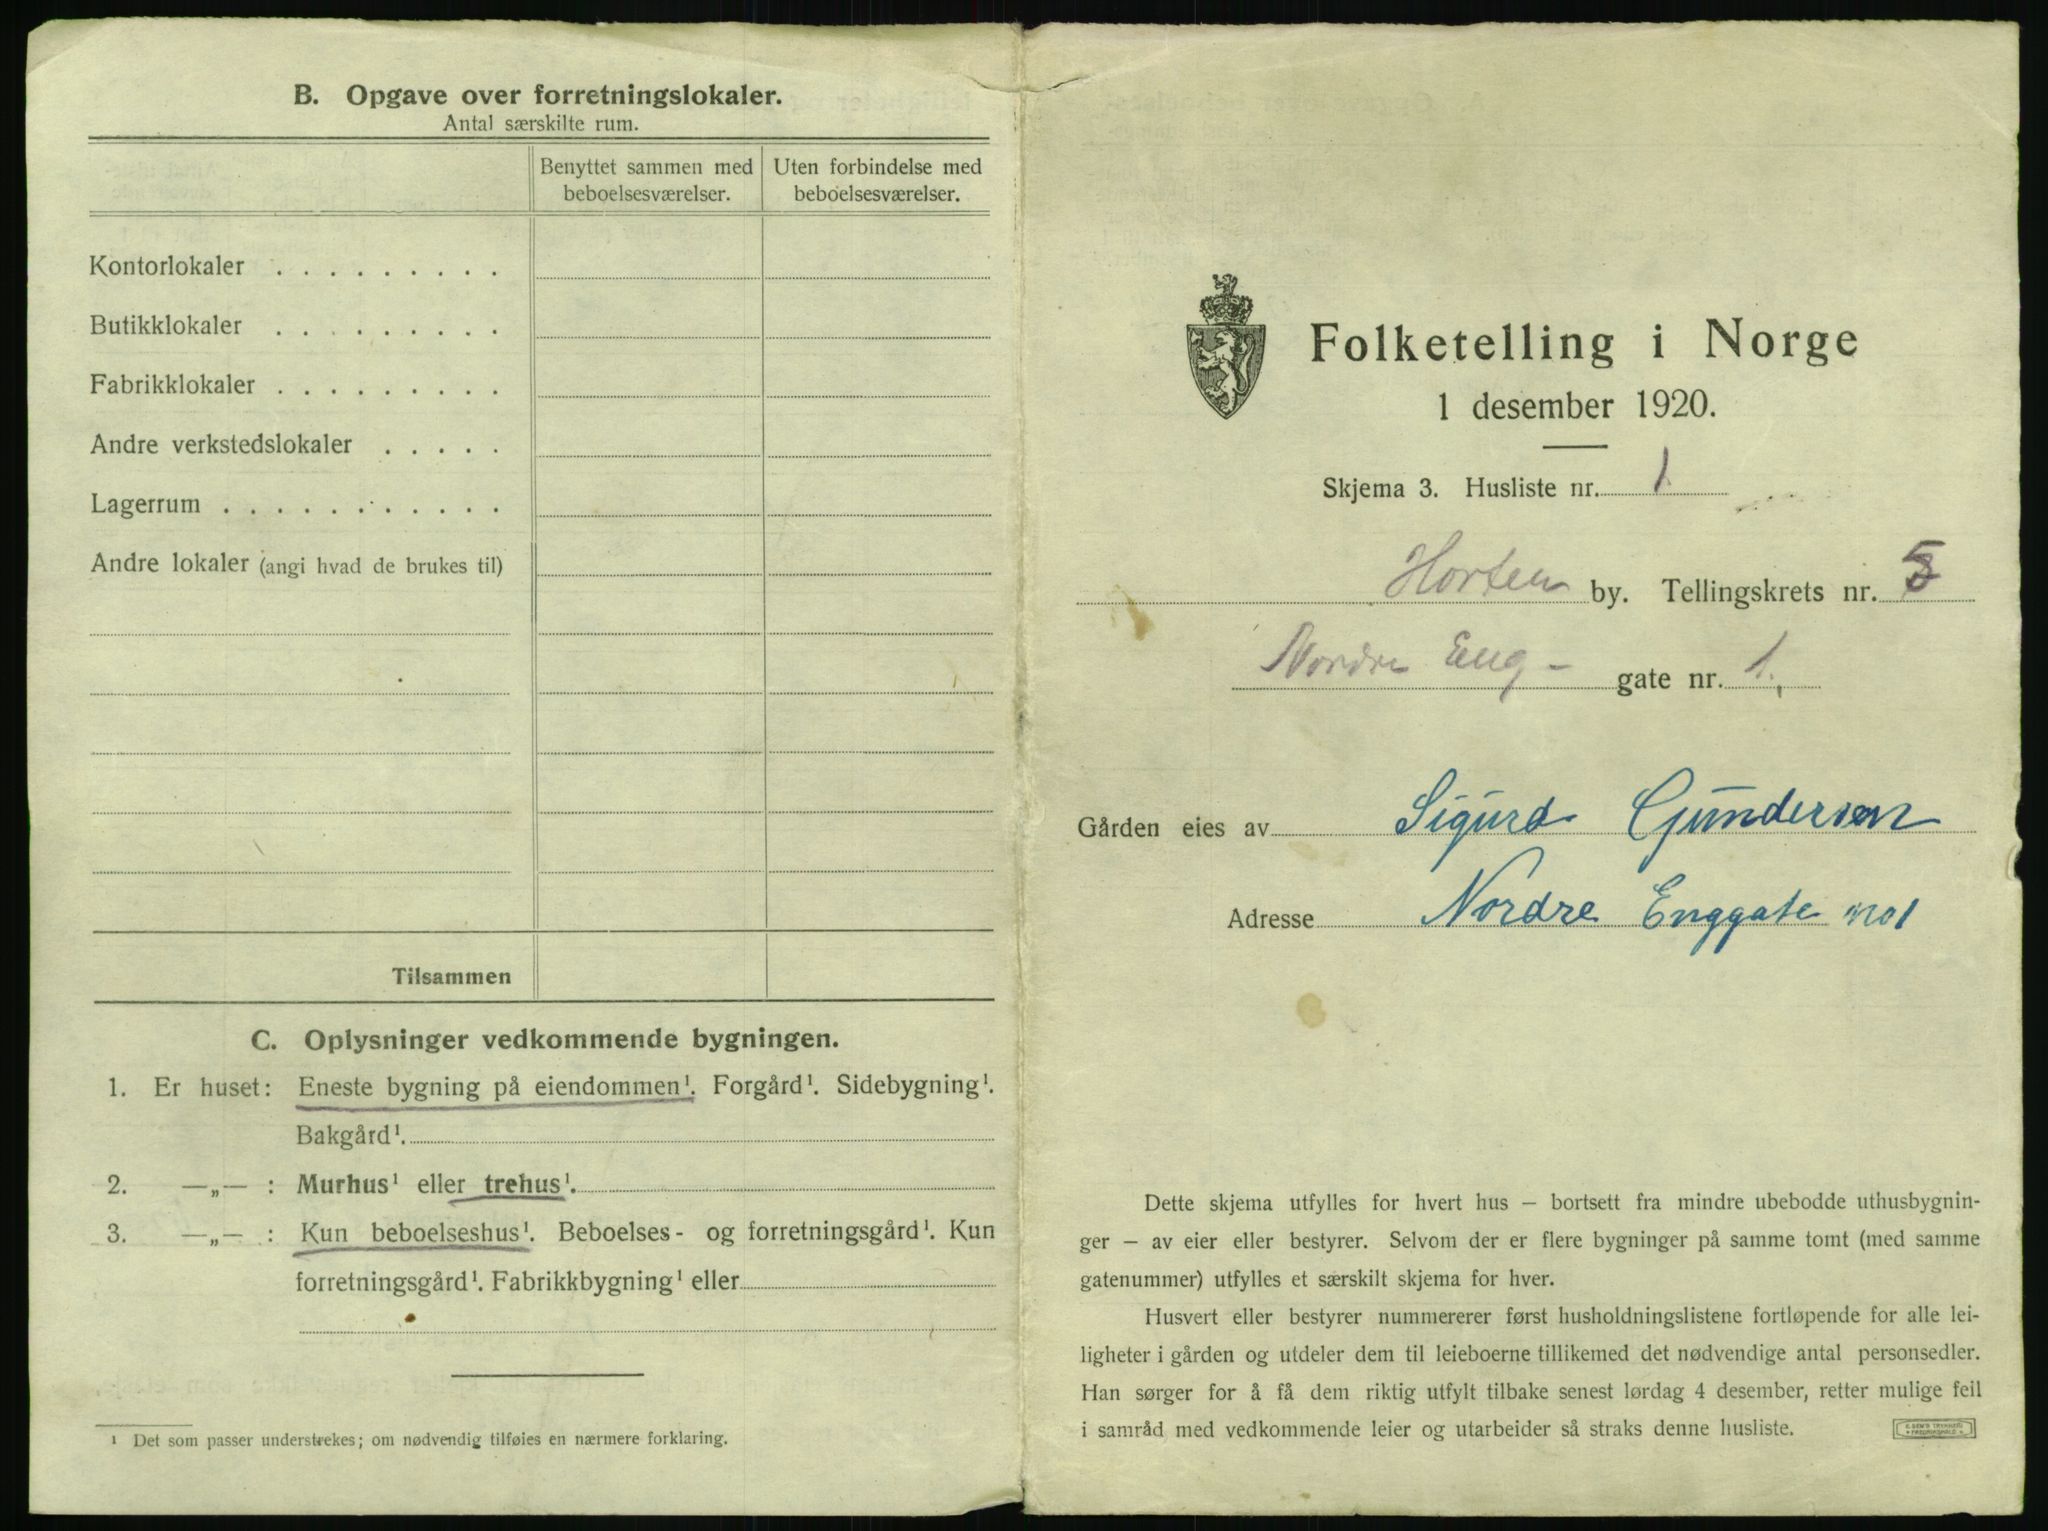 B. Opgave over forretningslokaler.
Antal særskilte rum.
Benyttet sammen med beboelsesværelser.
Uten forbindelse med beboelsesværelser.
Kontorlokaler . . . . . . . . .
Butikklokaler . . . . . . . . .
Fabrikklokaler . . . . . . . . .
Andre verkstedslokaler . . . . .
Lagerrum . . . . . . . . . . .
Andre lokaler (angi hvad de brukes til)
Tilsammen
C. Oplysninger vedkommende bygningen.
1. Er huset: Eneste bygning på eiendommen¹. Forgård¹. Sidebygning¹.
Bakgård¹.
2. —„— : Murhus¹ eller trehus¹.
3. —„— : Kun beboelseshus¹. Beboelses- og forretningsgård¹. Kun
forretningsgård¹. Fabrikkbygning¹ eller
¹ Det som passer understrekes; om nødvendig tilføies en nærmere forklaring.
Folketelling i Norge
1 desember 1920.
Skjema 3. Husliste nr. 1
Horten by. Tellingskrets nr. 5
Nordre Eng - gate nr. 1.
Gården eies av Sigurd Gundersen
Adresse Nordre Enggate no 1
Dette skjema utfylles for hvert hus – bortsett fra mindre ubebodde uthusbygnin-
ger – av eier eller bestyrer. Selvom der er flere bygninger på samme tomt (med samme
gatenummer) utfylles et særskilt skjema for hver.
Husvert eller bestyrer nummererer først husholdningslistene fortløpende for alle lei-
ligheter i gården og utdeler dem til leieboerne tillikemed det nødvendige antal personsedler.
Han sørger for å få dem riktig utfylt tilbake senest lørdag 4 desember, retter mulige feil
i samråd med vedkommende leier og utarbeider så straks denne husliste.